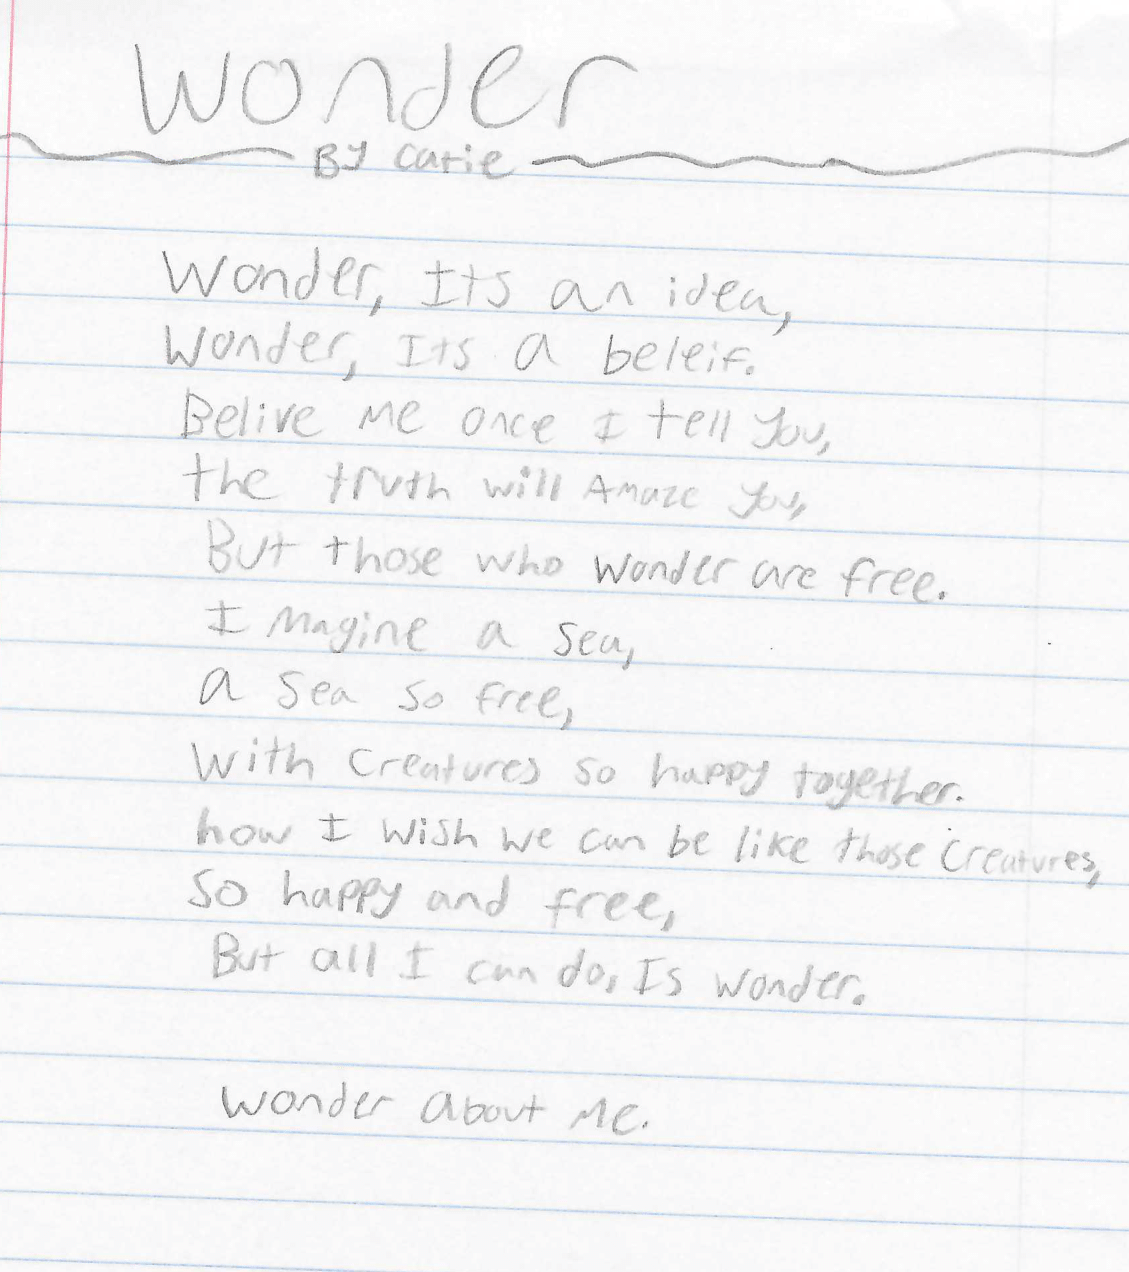 Wonder
BY Catie
Wonder, Its an idea,
Wonder, Its a beleif.
Belive me once I tell you,
the truth will Amaze you,
But those who wonder are free.
I magine a sea,
a sea so free,
With creatures so happy together.
how I wish we can be like those creatures,
So happy and free,
But all I can do, Is wonder.
Wonder about me.